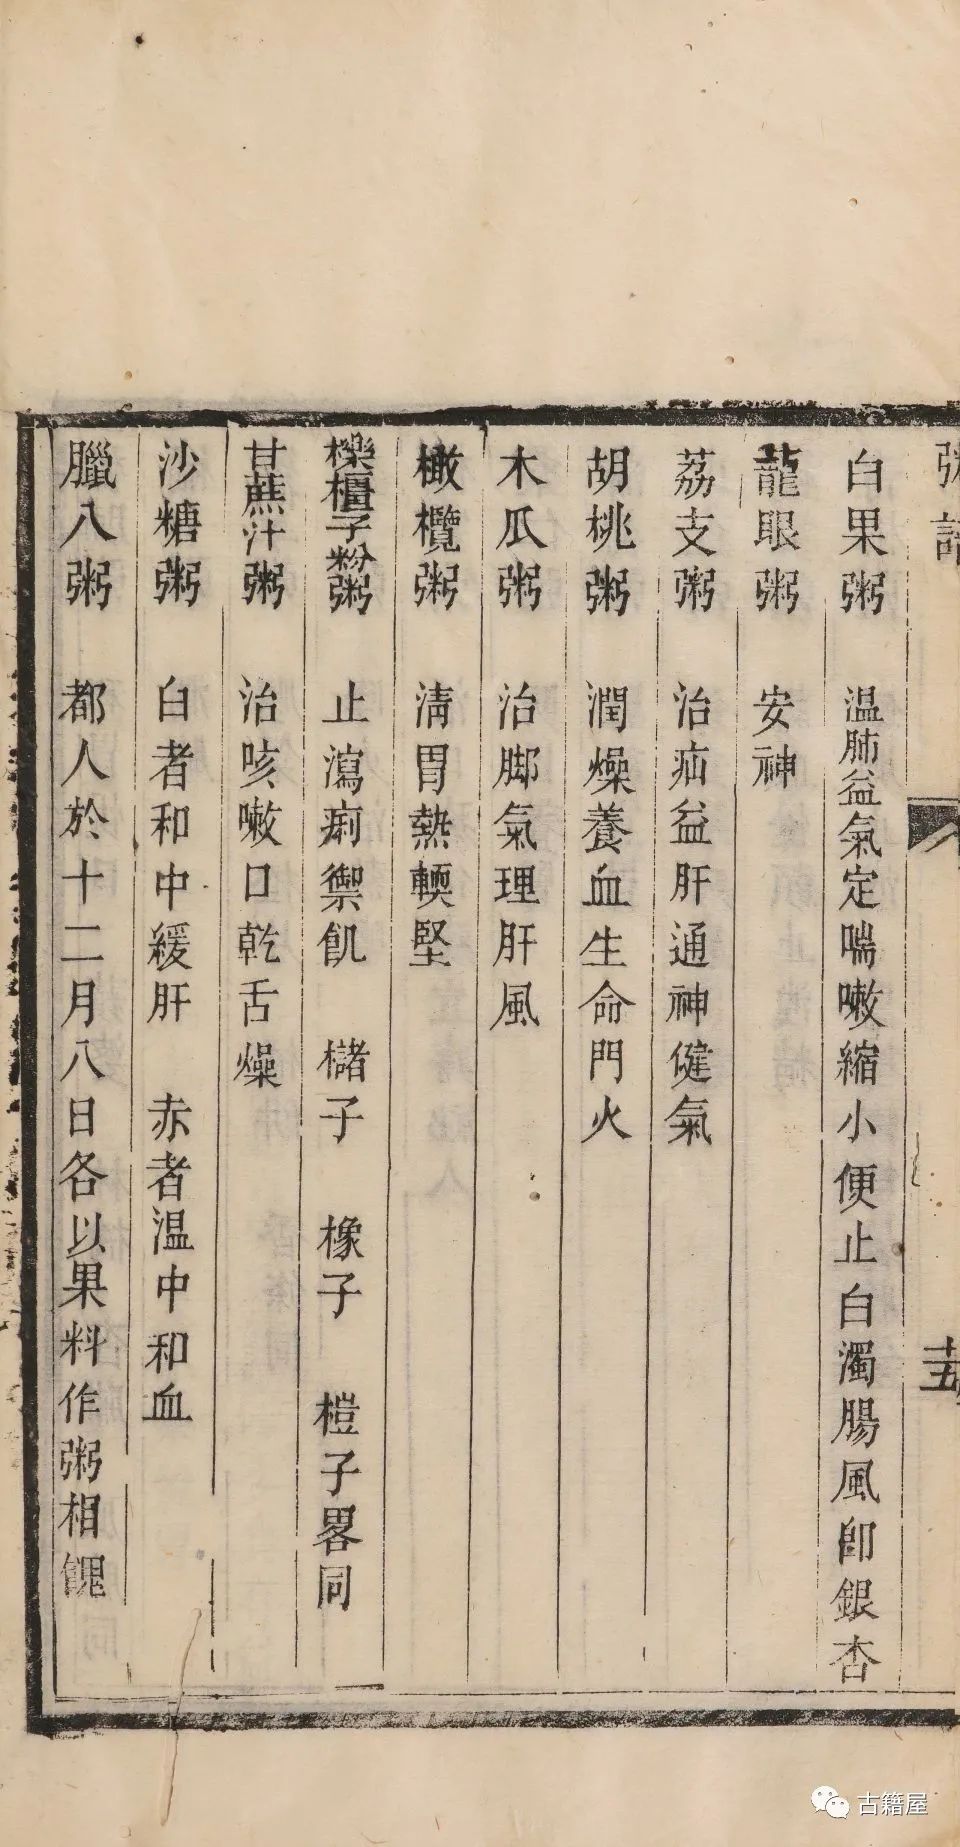 粥譜
十五
白果粥　温肺益氣定喘嗽縮小便止白濁腸風卽銀杏
龍眼粥　安神
荔支粥　治疝益肝通神健氣
胡桃粥　潤燥養血生命門火
木瓜粥　治腳氣理肝風
橄欖粥　清胃熱輭堅
櫟橿子粉粥　止瀉痢禦飢　櫧子　橡子　榿子畧同
甘蔗汁粥　治咳嗽口乾舌燥
沙糖粥　白者和中緩肝　赤者温中和血
臘八粥　都人於十二月八日各以果料作粥相餽
古籍屋